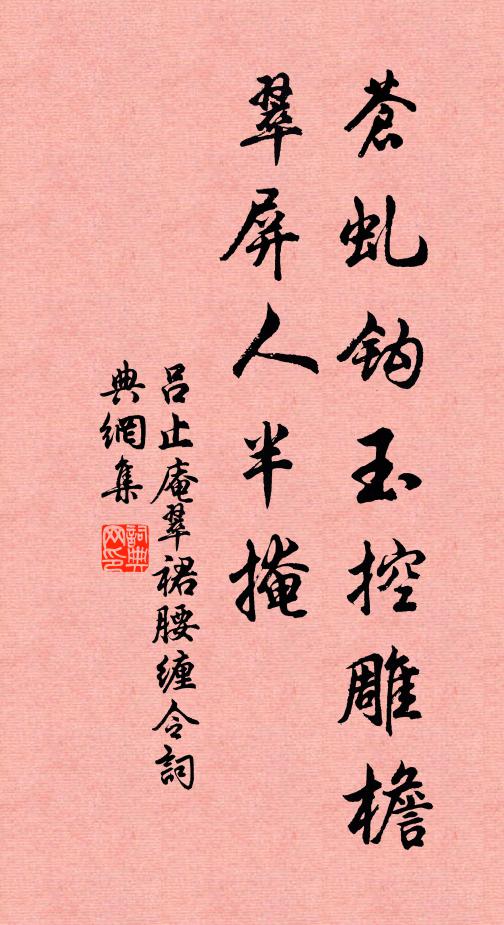 蒼虬鈎玉控雕檐
翠屏人半掩
呂止庵翠裙腰纏令詞
典網集
詞典網印